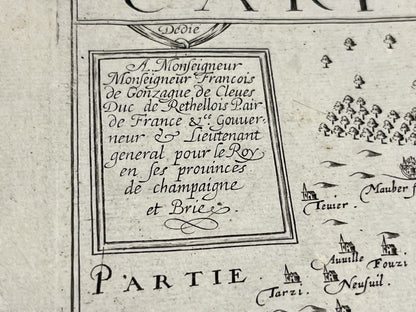 CART
Dédie
A. Monseigneur
Monseigneur François
de Gonzague de Cleues
Duc de Rethellois Pair
de France & c. Gouuer-
neur & Lieutenant
general pour le Roy
en ses prouinces
de champaigne
et Brie.
Mauber
Teuier.
Auuille
Fouzi
PARTIE.
Tarzi.
Neufuil.